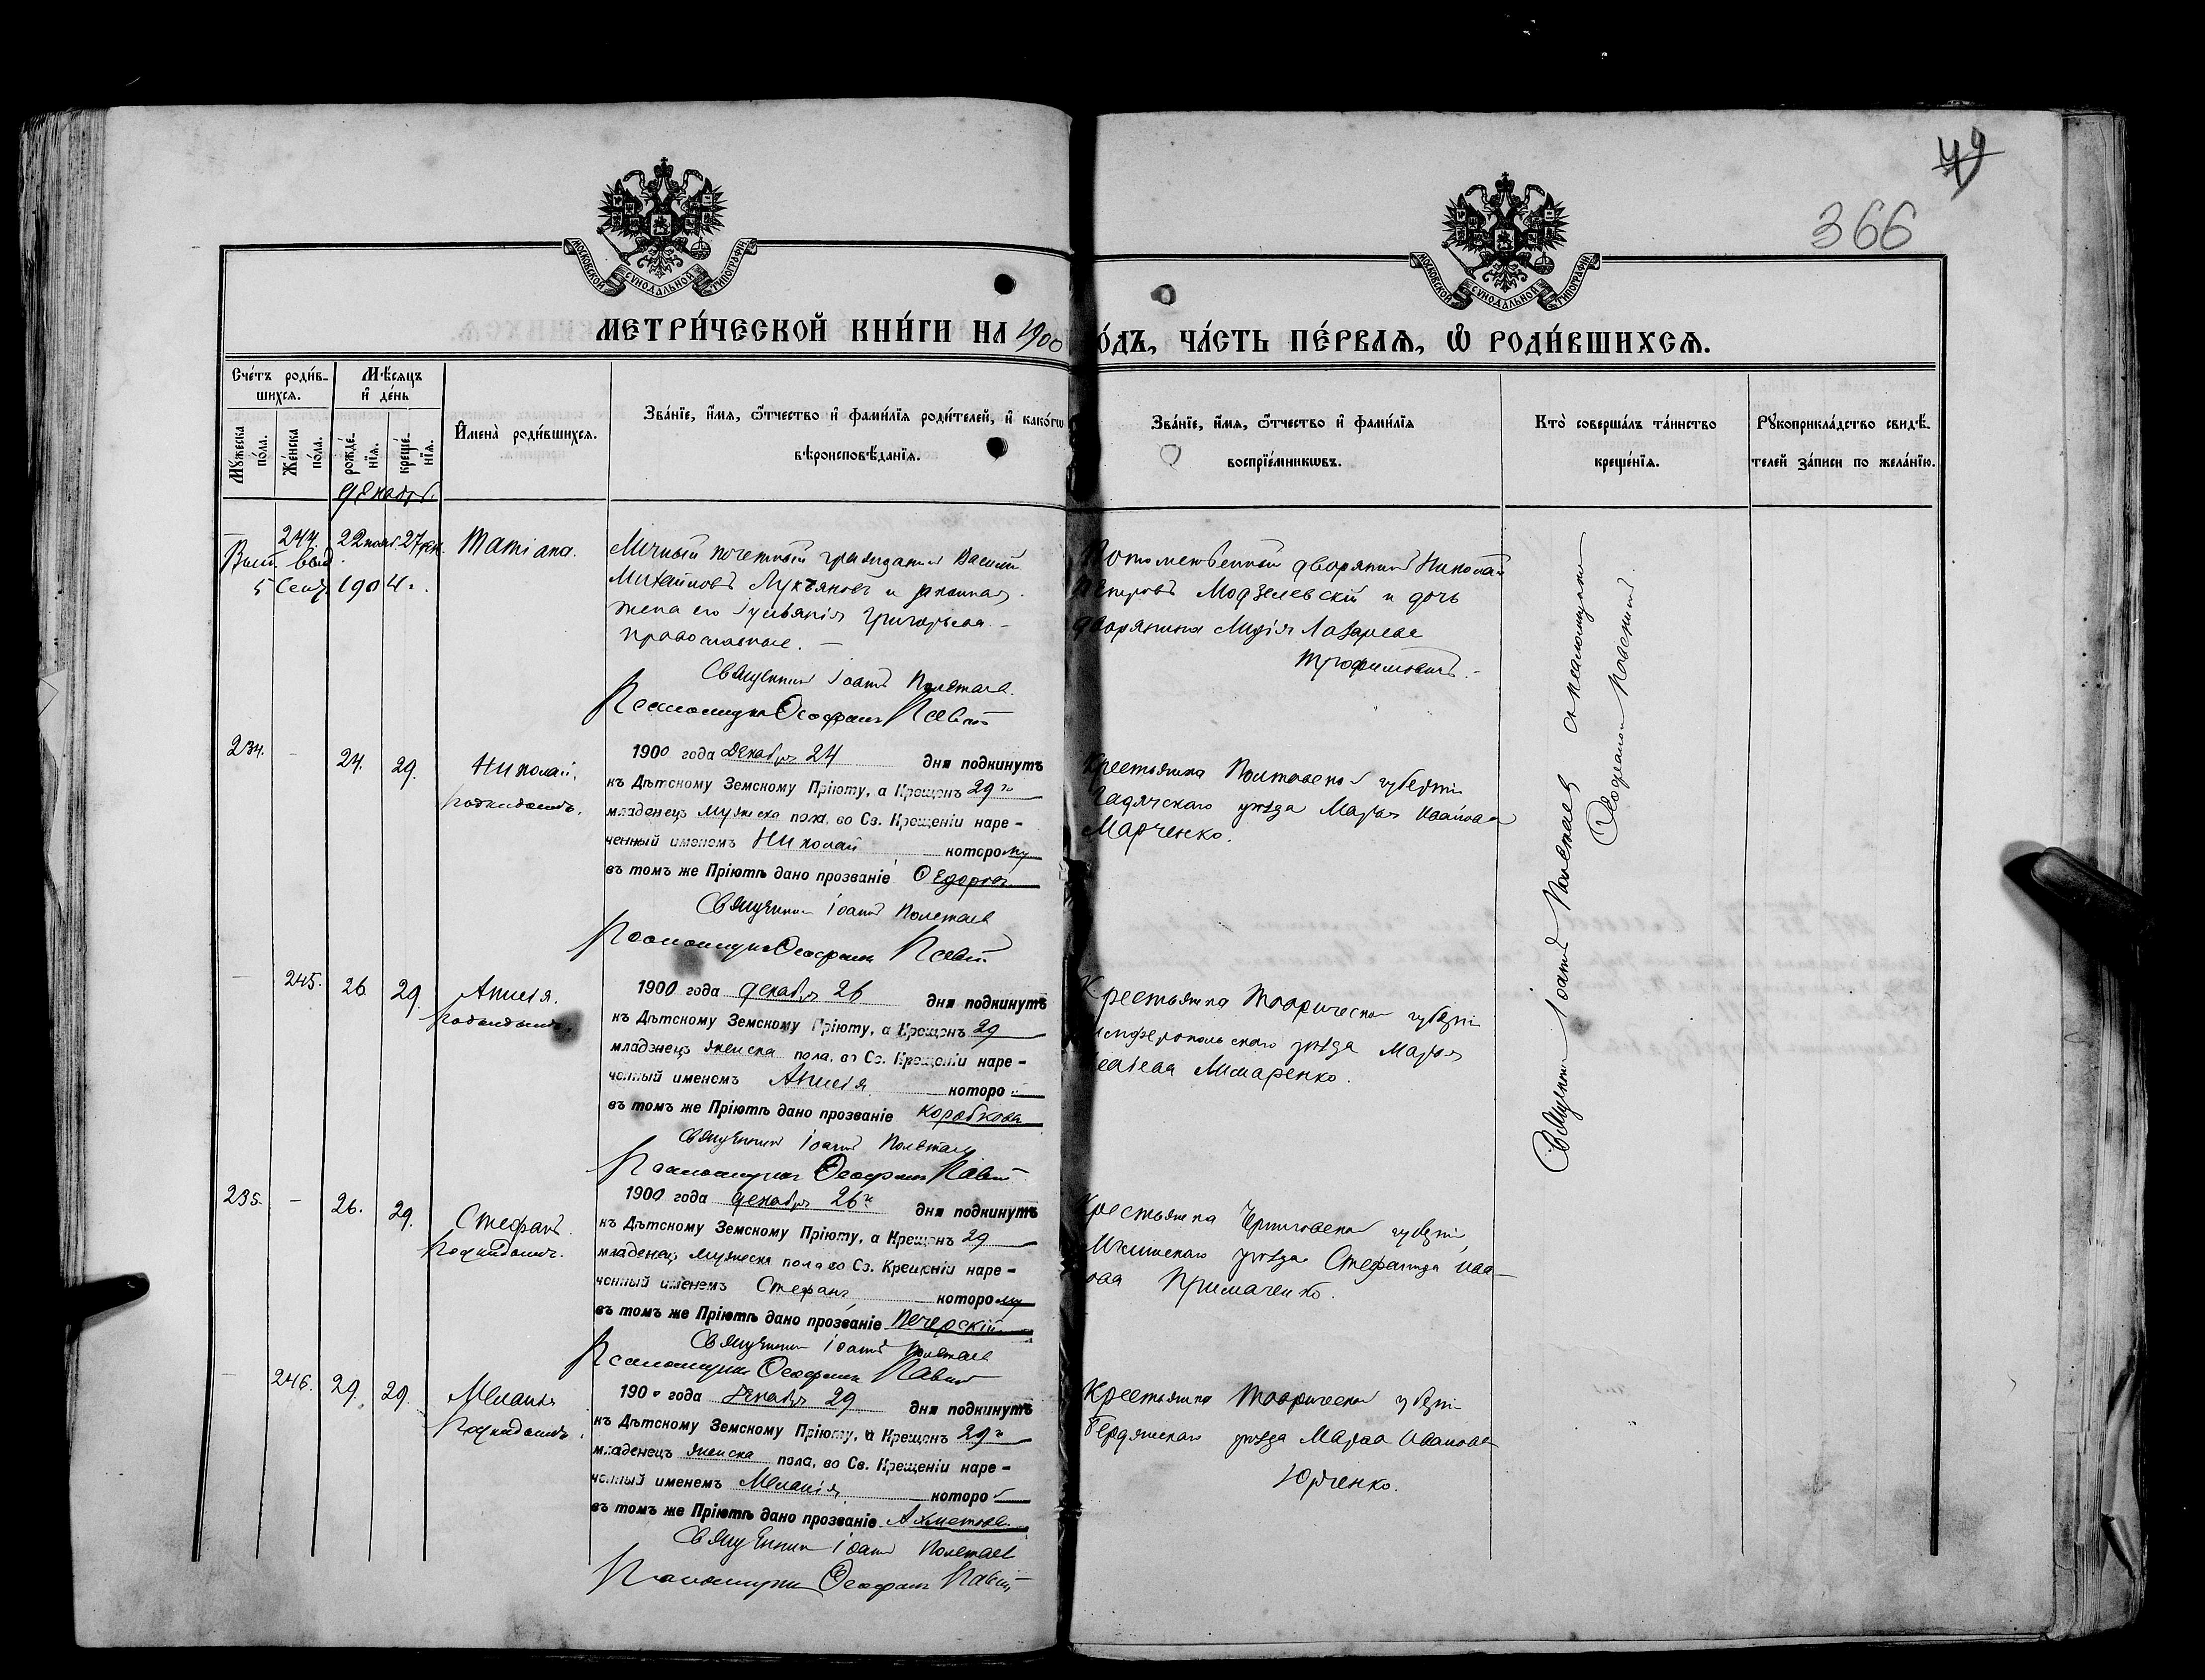 49
366
МОСКОВСКОЙ СѴНОДАЛЬНОЙ ТИПОГРАФІИ
МОСКОВСКОЙ СѴНОДАЛЬНОЙ ТИПОГРАФІИ
МЕТРИ́ЧЕСКОЙ КНИ́ГИ НА 1900
О́ДЪ, ЧА́СТЬ ПЕ́РВАѦ, Ѽ РОДИ́ВШИХСѦ.
Сче́тъ роди́в-
шихсѧ.
Мꙋ́жеска по́ла.
Же́нска по́ла.
Мѣ́сѧцъ
и҆ де́нь
рожде́-нїѧ.
креще́-нїѧ.
Декабрь.
И҆мена̀ роди́вшихсѧ.
Зва́нїе, и҆́мѧ, ѻ҆́тчество и҆ фами́лїѧ роди́телей, и҆ како́гѡ
вѣроисповѣ́данїѧ.
Зва́нїе, и҆́мѧ, ѻ҆́тчество и҆ фами́лїѧ
воспрїе́мникѡвъ.
Кто̀ соверша́лъ та́инство
креще́нїѧ.
Рꙋкоприкла́дство свидѣ́-
телей за́писи по жела́нїю.
244. 22 нояб. 27 дек. Татіана.
5 Сент. 1904 г.
Личный почетный гражданинъ Василій
Михайловъ Лукьяновъ и законная
жена его Григорьева
православные.
Священникъ Іоаннъ Полетаев
Псаломщикъ Ѳеофанъ
Потомственный дворянинъ Николай
Петровъ Модзелевскій и дочь
дворянина Лидія Лазарева
Трофимовичъ.
Священникъ Іоаннъ Полетаев съ псаломщикомъ
Ѳеофаномъ
234. - 24. 29. Николай.
подкидышъ.
1900 года Декабря 24 дня подкинутъ
къ Дѣтскому Земскому Пріюту, а Крещенъ 29го
младенецъ мужеска пола, во Св. Крещеніи наре-
ченный именемъ Николай которому
въ томъ же Пріютѣ дано прозваніе Ѳедоровъ
Священникъ Іоаннъ Полетаев
Псаломщикъ Ѳеофанъ
Крестьянка Полтавской губерніи
Гадячскаго уѣзда Марья Иванова
Марченко.
- 245. 26. 29. Анисія.
подкидышъ.
1900 года декабря 26 дня подкинутъ
къ Дѣтскому Земскому Пріюту, а Крещенъ 29
младенецъ женска пола, во Св. Крещеніи наре-
ченный именемъ Анисія которой
въ томъ же Пріютѣ дано прозваніе Коробкова
Священникъ Іоаннъ Полетаев
Псаломщикъ Ѳеофанъ
Крестьянка Таврической губерніи
Симферопольскаго уѣзда Марья
Лимаренко.
235. - 26. 29. Стефанъ.
Подкидышъ.
1900 года декабря 26го дня подкинутъ
къ Дѣтскому Земскому Пріюту, а Крещенъ 29
младенецъ мужеска пола во Св. Крещеніи наре-
ченный именемъ Стефанъ которому
въ томъ же Пріютѣ дано прозваніе Печерскій
Священникъ Іоаннъ Полетаев
Псаломщикъ Ѳеофанъ
Крестьянка Черниговской губерніи
уѣзда Стефанида Ива-
нова Примаченко.
- 246. 29. 29. Меланія
Подкидышъ.
1900 года Декабря 29 дня подкинутъ
къ Дѣтскому Земскому Пріюту, а Крещенъ 29го
младенецъ женска пола, во Св. Крещеніи наре-
ченный именемъ Меланія которой
въ томъ же Пріютѣ дано прозваніе Ахметова.
Священникъ Іоаннъ Полетаев
Псаломщикъ Ѳеофанъ
Крестьянка Таврической губерніи
Бердянскаго уѣзда Марья Иванова
Юрченко.